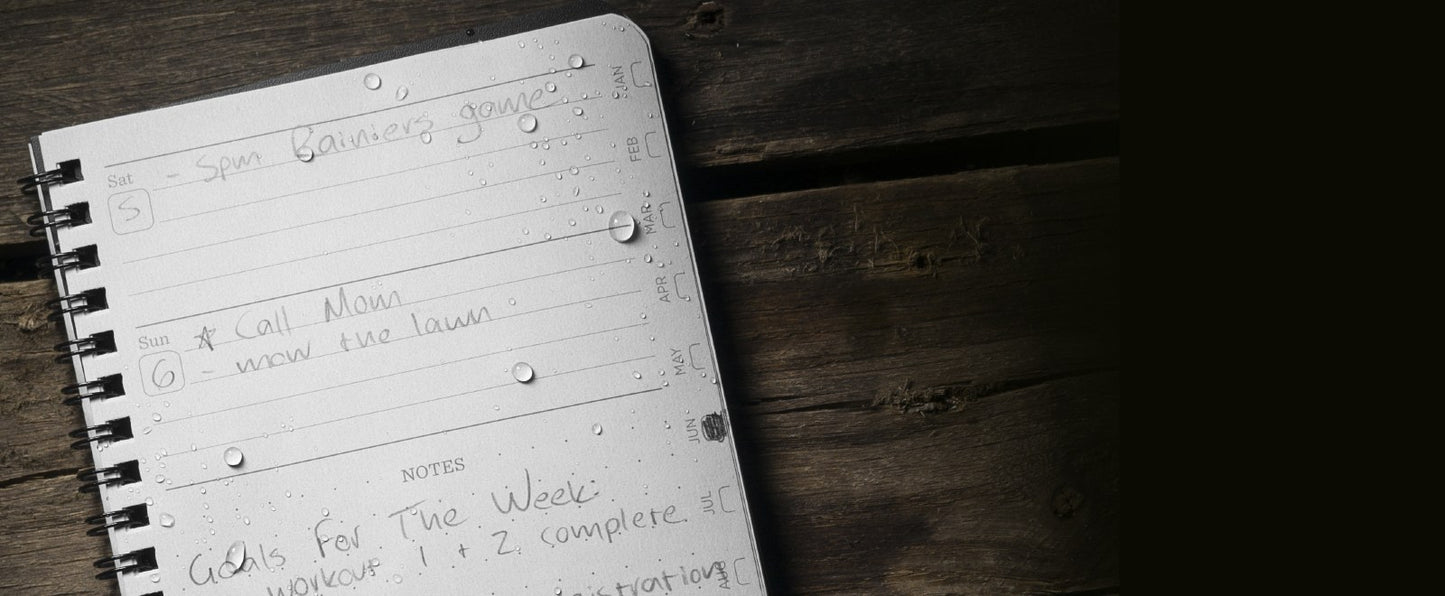 Sat
5
- 5pm Rainiers game
Sun
6
☆ Call Mom
- mow the lawn
NOTES
Goals For The Week:
workout 1 + 2 complete
JAN
FEB
MAR
APR
MAY
JUN
JUL
AUG